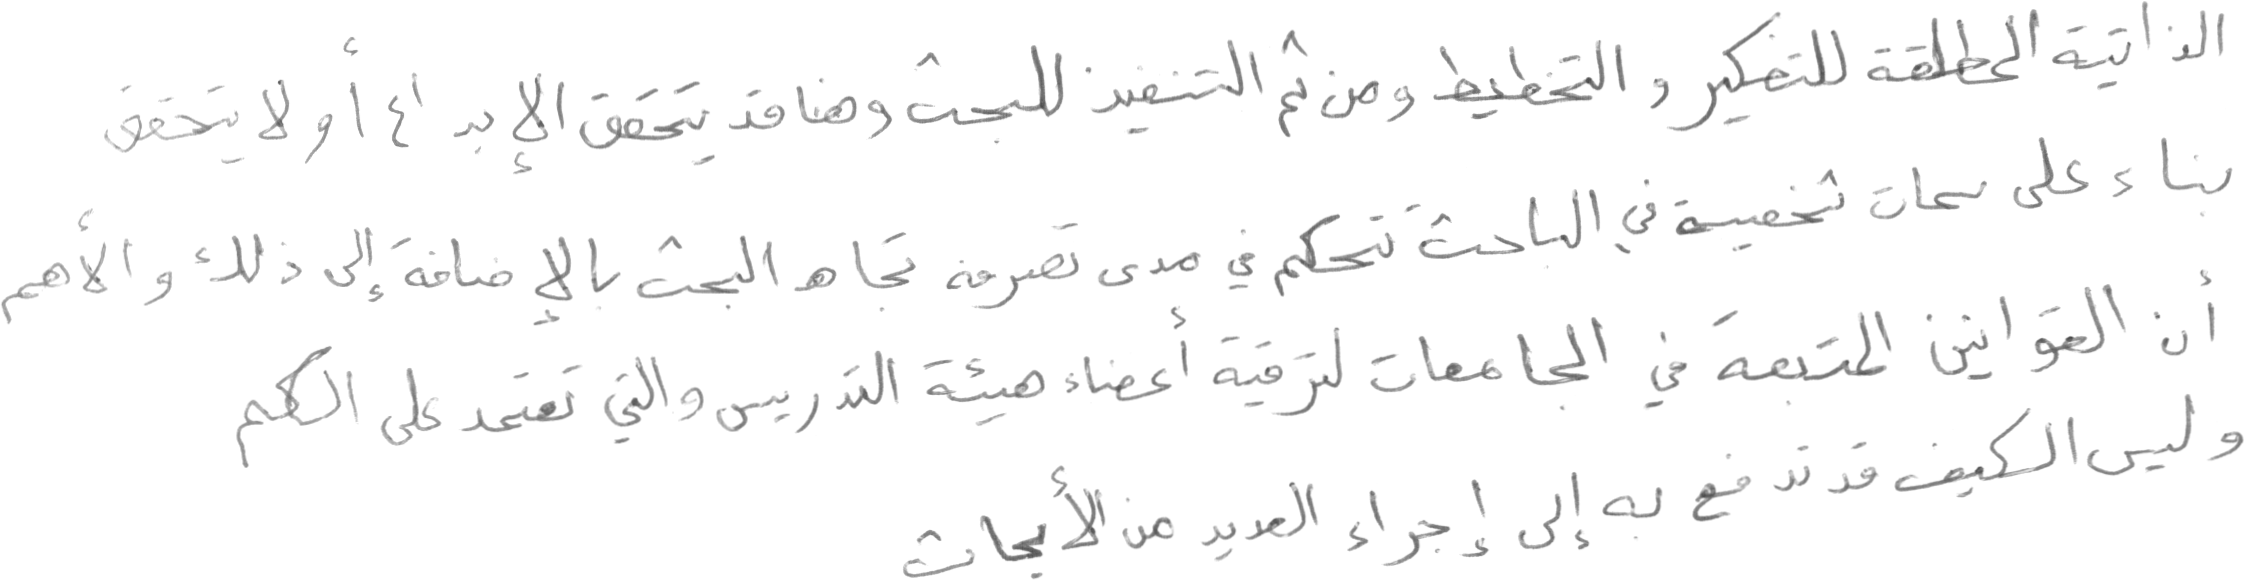 الذاتية المطلقة للتفكير والتخطيط ومن ثم التنفيذ للبحث وهنا قد يتحقق الإبداع أو لا يتحقق
بناء على سمات شخصية في الباحث تتحكم في مدى تصرفه تجاه البحث بالإضافة إلى ذلك والأهم
أن القوانين المتبعة في الجامعات لترقية أعضاء هيئة التدريس والتي تعتمد على الكم
وليس الكيف قد تدفع به إلى إجراء العديد من الأبحاث